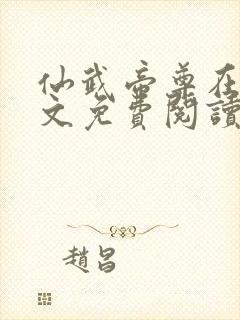 仙武帝尊在
文免費閱讀
趙昌